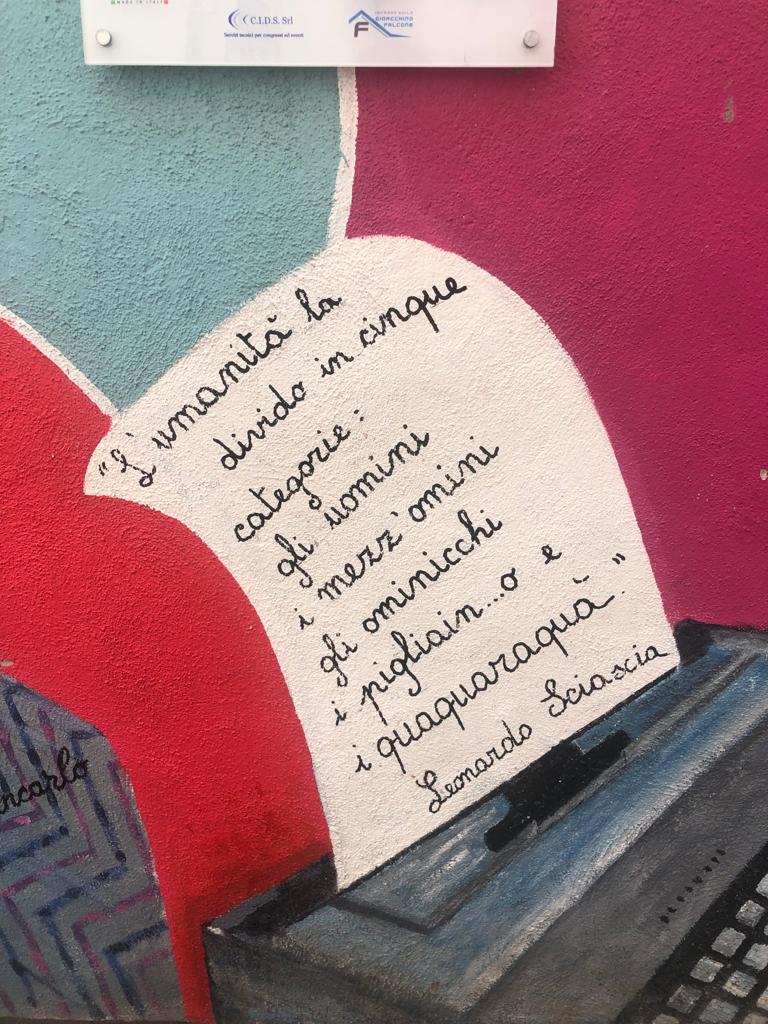 MADE IN ITALY
C.I.D.S. Srl
Servizi tecnici per congressi ed eventi
IMPRESA EDILE
GIOACCHINO
FALCONE
"L'umanità la
divido in cinque
categorie:
gli uomini
i mezz'omini
gli ominicchi
i pigliain...o e
i quaquaraquà."
Leonardo Sciascia
ncarlo